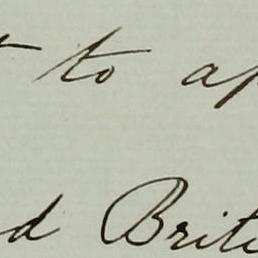 to ap
d Brit